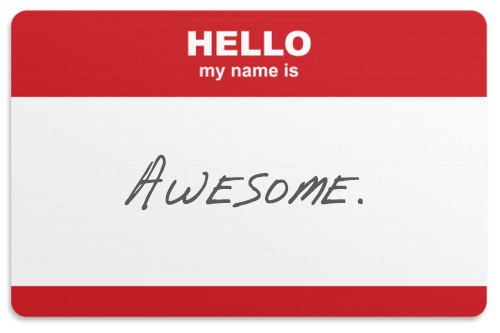 HELLO
my name is
Awesome.